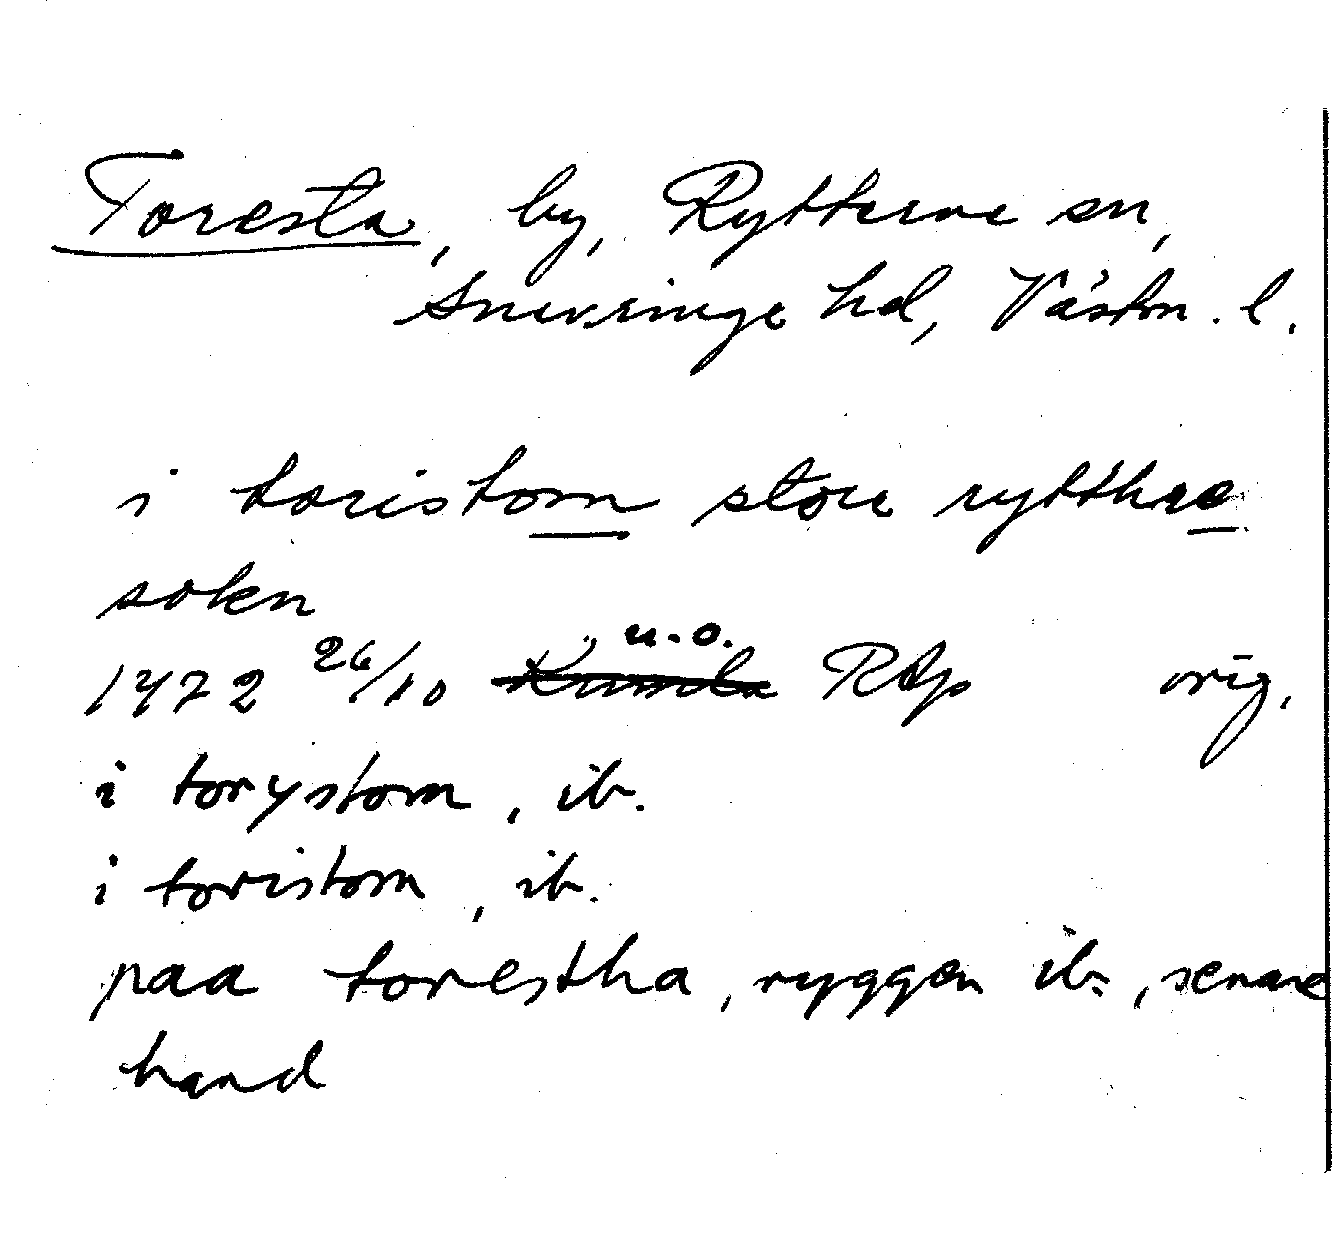 Toresta, by, Rytterne sn,
Snevringe hd, Västm. l.
i toristom store rytthre
sokn
1472 26/10 Kumla u.o. RAp orig.
i torystom, ib.
i toristom, ib.
paa torestha, ryggen ib., senare
hand